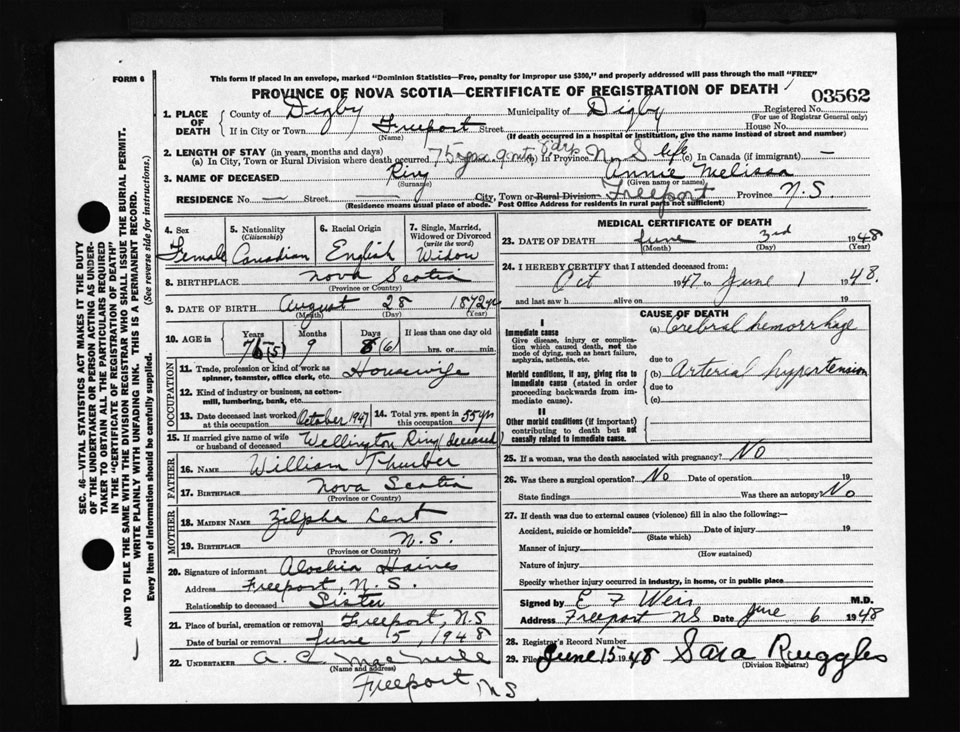 FORM 6
This form if placed in an envelope, marked "Dominion Statistics—Free, penalty for improper use $300," and properly addressed will pass through the mail "FREE"
PROVINCE OF NOVA SCOTIA—CERTIFICATE OF REGISTRATION OF DEATH
03562
1. PLACE OF DEATH
County of Digby Municipality of Digby Registered No.
(For use of Registrar General only)
If in City or Town Freeport Street House No.
(Name) (If death occurred in a hospital or institution, give the name instead of street and number)
2. LENGTH OF STAY (in years, months and days)
(a) In City, Town or Rural Division where death occurred 75 yrs 9 mts 6 dys (b) in Province N. S life (c) in Canada (if immigrant) —
3. NAME OF DECEASED Ring Annie Melissa
(Surname) (Given name or names)
RESIDENCE No. — Street — City, Town or Rural Division Freeport Province N.S.
(Residence means usual place of abode. Post Office Address for residents in rural parts not sufficient)
4. Sex Female
5. Nationality (Citizenship) Canadian
6. Racial Origin English
7. Single, Married, Widowed or Divorced (write the word) Widow
8. BIRTHPLACE Nova Scotia
(Province or Country)
9. DATE OF BIRTH August 28 1872
(Month) (Day) (Year)
10. AGE in Years Months Days If less than one day old
75 (5) 9 8 (6) hrs. or min.
OCCUPATION
11. Trade, profession or kind of work as spinner, teamster, office clerk, etc. Housewife
12. Kind of industry or business, as cotton-mill, lumbering, bank, etc.
13. Date deceased last worked at this occupation October 1947
14. Total yrs. spent in this occupation 55 yrs
15. If married give name of wife or husband of deceased Wellington Ring (deceased)
FATHER
16. NAME William Thurber
17. BIRTHPLACE Nova Scotia
(Province or Country)
MOTHER
18. MAIDEN NAME Zilpha Lent
19. BIRTHPLACE N.S.
(Province or Country)
20. Signature of informant Haines
Address Freeport, N.S.
Relationship to deceased Sister
21. Place of burial, cremation or removal Freeport, N.S
Date of burial or removal June 5, 1948
22. UNDERTAKER A. C. MacNeill
(Name and address)
Freeport, N S
MEDICAL CERTIFICATE OF DEATH
23. DATE OF DEATH June 3rd 1948
(Month) (Day) (Year)
24. I HEREBY CERTIFY that I attended deceased from:
Oct 1947 to June 1 1948.
and last saw h alive on 19
CAUSE OF DEATH
I
Immediate cause
Give disease, injury or complication which caused death, not the mode of dying, such as heart failure, asphyxia, asthenia, etc.
(a) Cerebral hemorrhage
due to
Morbid conditions, if any, giving rise to immediate cause (stated in order proceeding backwards from immediate cause).
(b) Arterial hypertension
due to
(c)
II
Other morbid conditions (if important) contributing to death but not causally related to immediate cause.
25. If a woman, was the death associated with pregnancy? No
26. Was there a surgical operation? No Date of operation 19
State findings Was there an autopsy No
27. If death was due to external causes (violence) fill in also the following:—
Accident, suicide or homicide? Date of injury 19
(State which)
Manner of injury
(How sustained)
Nature of injury
Specify whether injury occurred in industry, in home, or in public place
Signed by E F Weir M.D.
Address Freeport NS Date June 6 1948
28. Registrar's Record Number
29. Filed June 15 1948 Sara Ruggles
(Division Registrar)
SEC. 46—VITAL STATISTICS ACT MAKES IT THE DUTY
OF THE UNDERTAKER OR PERSON ACTING AS UNDERTAKER TO OBTAIN ALL THE PARTICULARS REQUIRED
IN THE "CERTIFICATE OF REGISTRATION OF DEATH"
AND TO FILE THE SAME WITH THE DIVISION REGISTRAR WHO SHALL ISSUE THE BURIAL PERMIT.
WRITE PLAINLY WITH UNFADING INK. THIS IS A PERMANENT RECORD.
Every item of information should be carefully supplied. (See reverse side for instructions.)